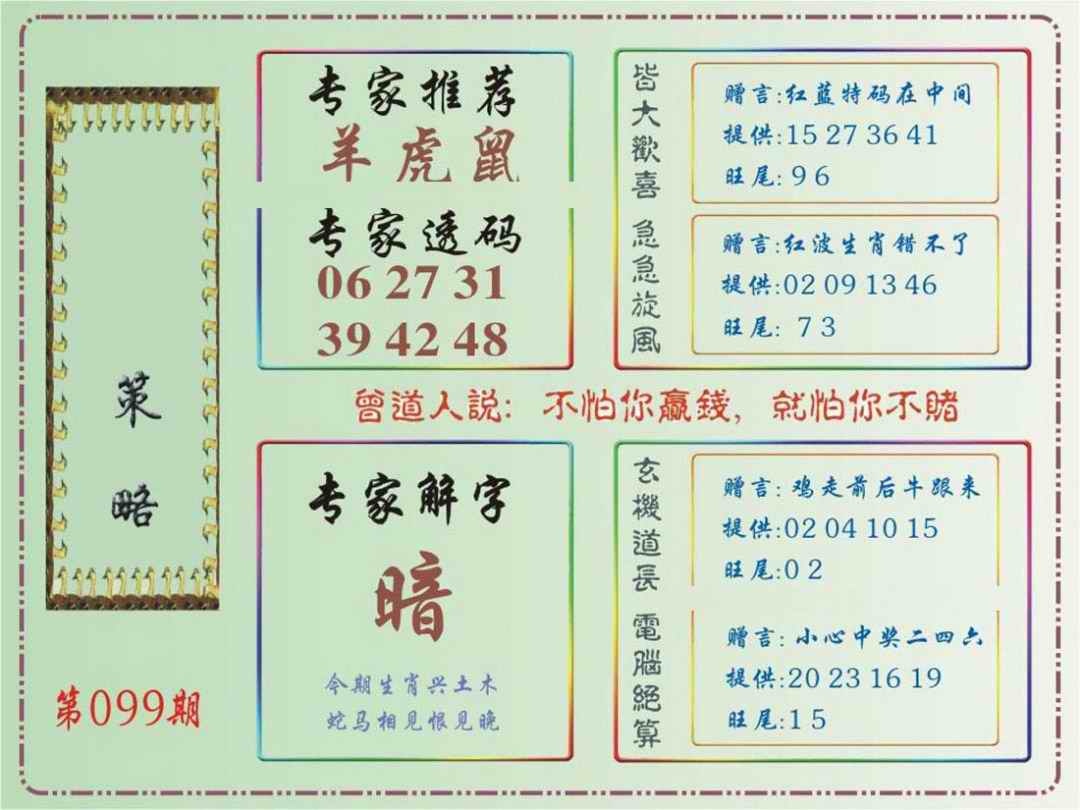 策略
第099期
专家推荐
羊虎鼠
专家透码
06 27 31
39 42 48
皆大歡喜
赠言:红蓝特码在中间
提供:15 27 36 41
旺尾: 9 6
急急旋風
赠言:红波生肖错不了
提供:02 09 13 46
旺尾: 7 3
曾道人説: 不怕你贏錢, 就怕你不賭
专家解字
暗
令期生肖兴土木
蛇马相见恨见晚
玄機道長
赠言: 鸡走前后牛跟来
提供:02 04 10 15
旺尾:0 2
電腦絕算
赠言: 小心中奖二四六
提供:20 23 16 19
旺尾:1 5